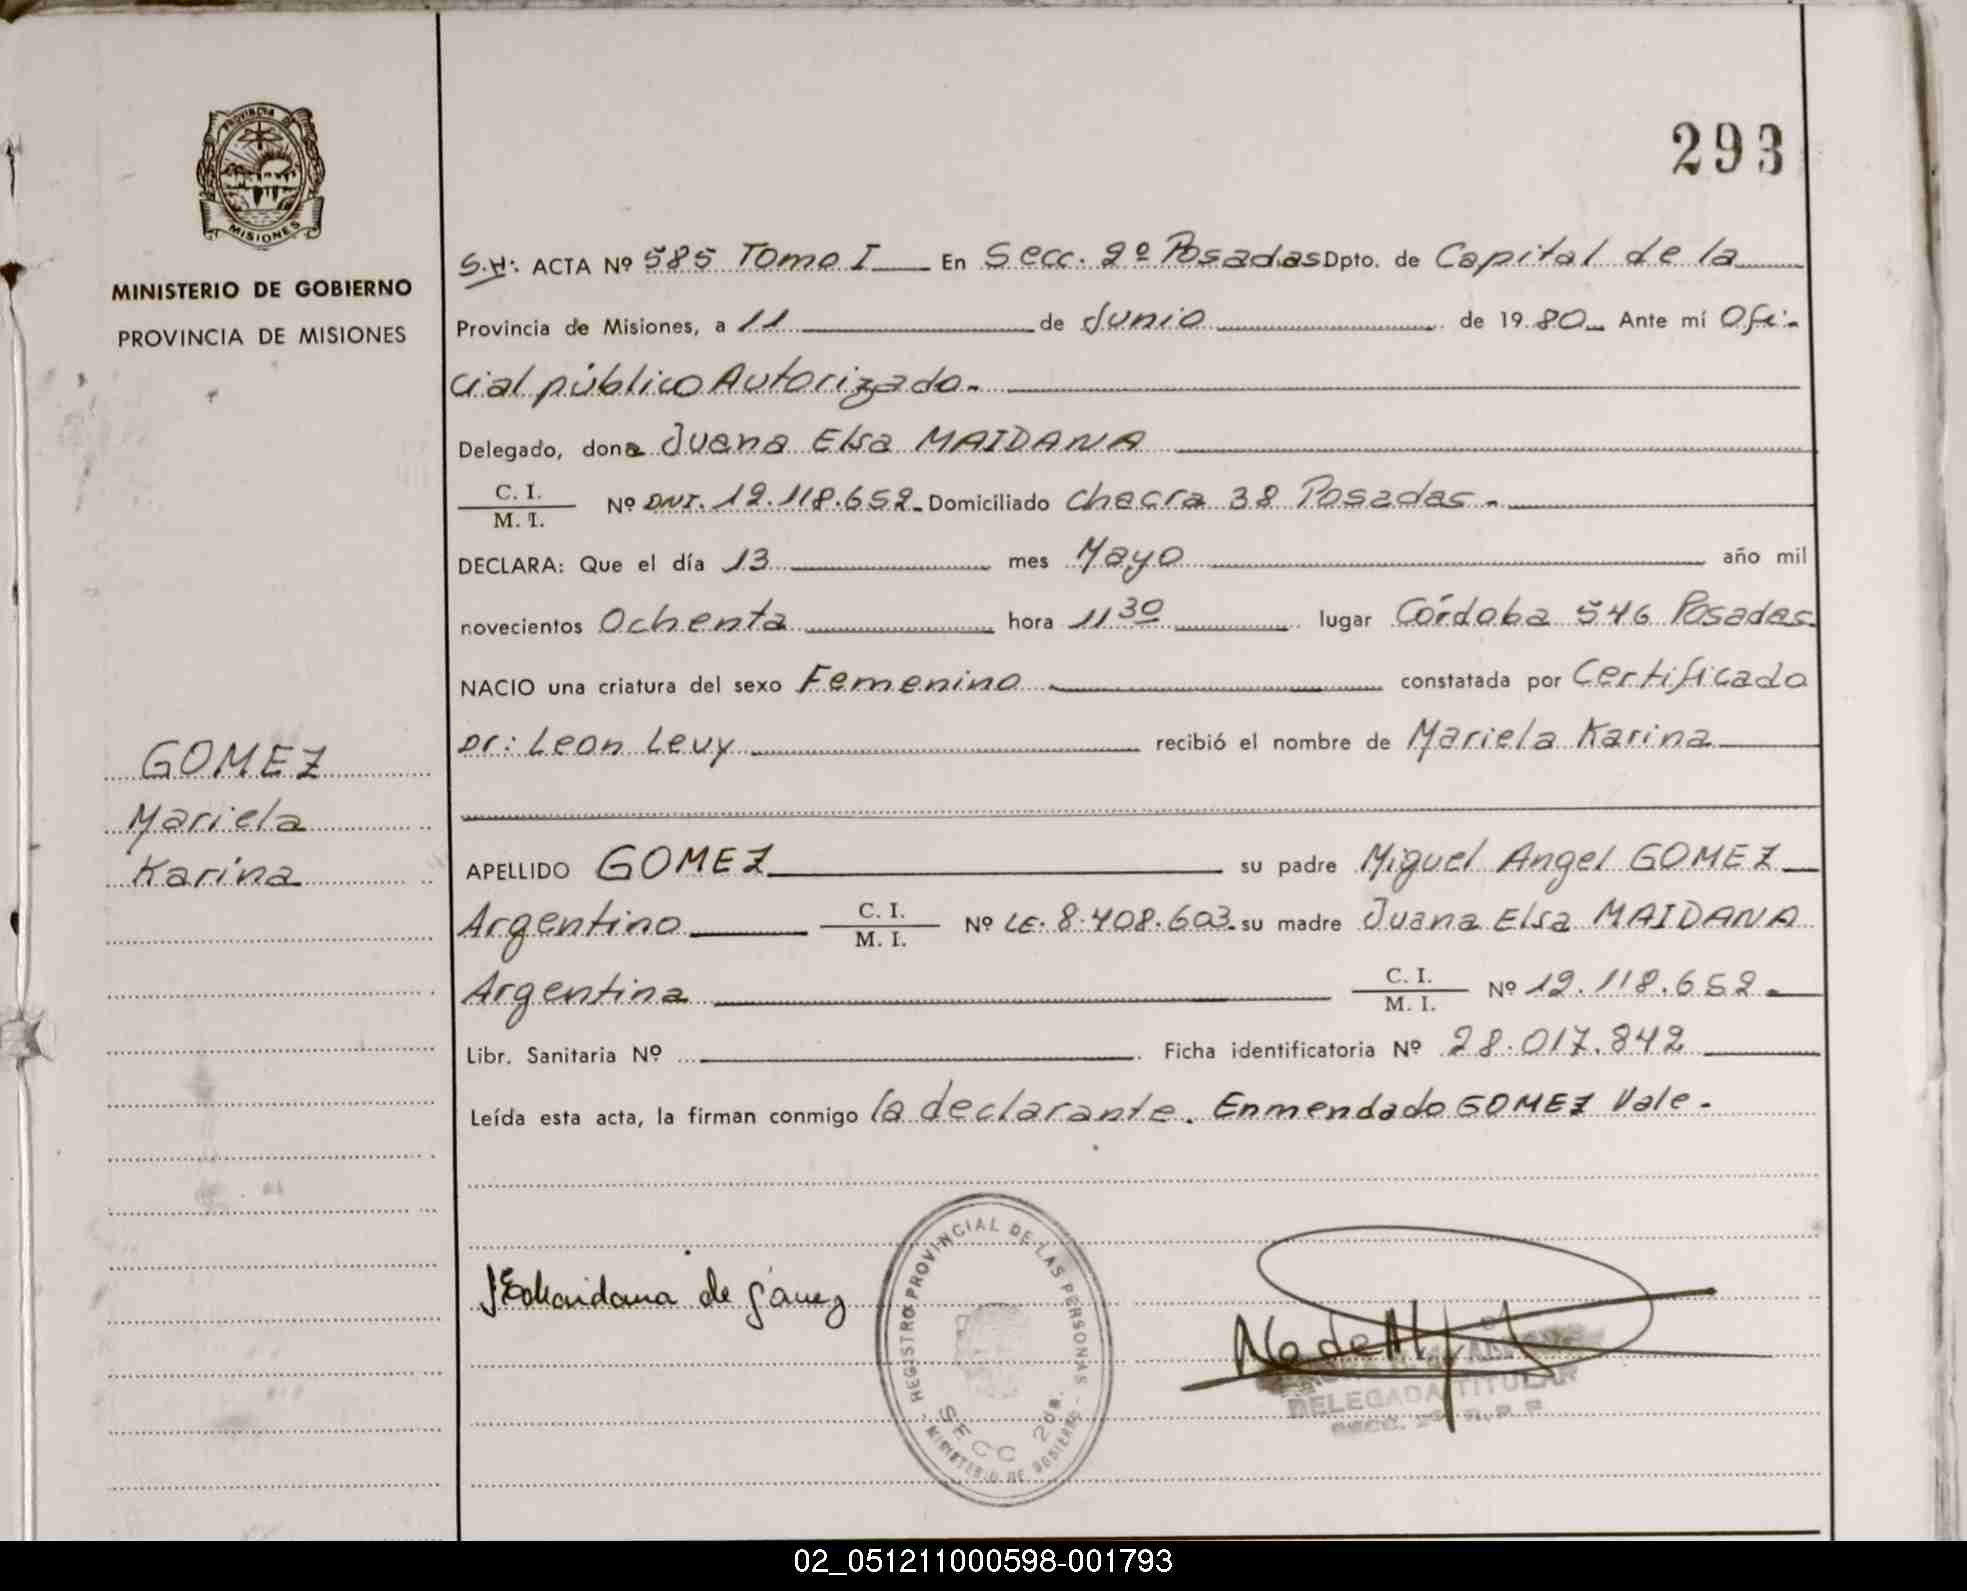 293
PROVINCIA DE
MISIONES
MINISTERIO DE GOBIERNO
PROVINCIA DE MISIONES
GOMEZ
Mariela
Karina
S.H: ACTA Nº 585 Tomo I En Secc. 2º Posadas Dpto. de Capital de la
Provincia de Misiones, a 11 de Junio de 1980 Ante mí Ofi-
cial público Autorizado.
Delegado, dona Juana Elsa MAIDANA
C. I.
M. I.
Nº DNI. 12.118.652 Domiciliado Chacra 38 Posadas.-
DECLARA: Que el día 13 mes Mayo año mil
novecientos Ochenta hora 11 30 lugar Córdoba 546 Posadas
NACIO una criatura del sexo Femenino constatada por Certificado
Dr: Leon Levy recibió el nombre de Mariela Karina
APELLIDO GOMEZ su padre Miguel Angel GOMEZ
Argentino C. I. M. I. Nº LE. 8.408.603. su madre Juana Elsa MAIDANA
Argentina C. I. M. I. Nº 12.118.652.
Libr. Sanitaria Nº Ficha identificatoria Nº 28.017.842
Leída esta acta, la firman conmigo la declarante. Enmendado GOMEZ Vale.-
REGISTRO PROVINCIAL DE LAS PERSONAS
SECC 2da.
MINISTERIO DE GOBIERNO
DELEGADA TITULAR
02_051211000598-001793